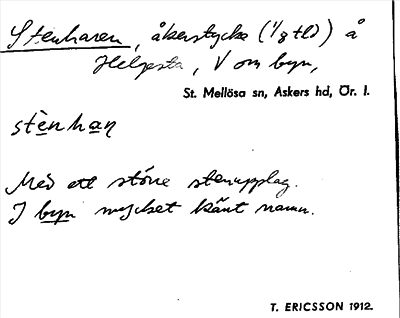 Stenharen, åkerstycke (1/8 tld) å
Helgesta, V om byn,
St. Mellösa sn, Askers hd, Ör. l.
stènhan
Med ett större stenupplag.
I byn mycket känt namn.
T. ERICSSON 1912.